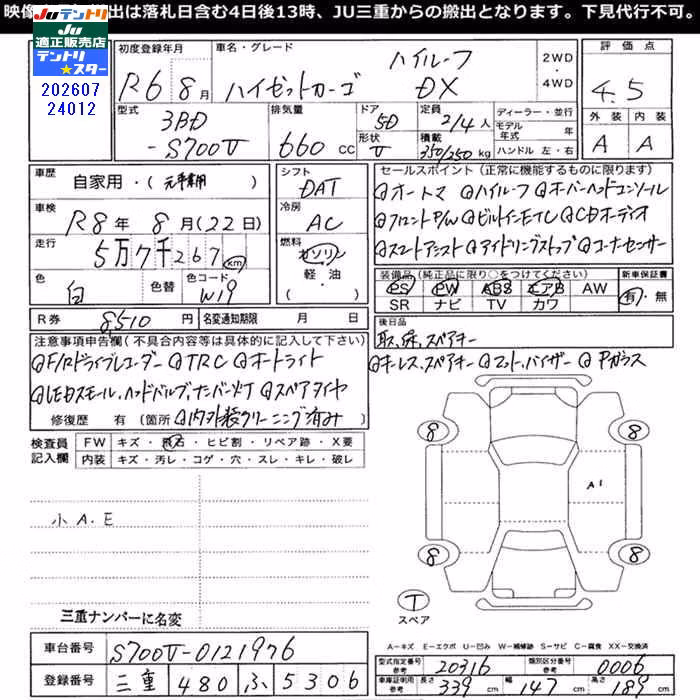 映像 出は落札日含む4日後13時、JU三重からの搬出となります。下見代行不可。
JUテントリ
適正販売店
テントリ
★スター
202607
24012
初度登録年月 R6年8月
車名・グレード ハイゼットカーゴ ハイルーフ DX
2WD・4WD
評価点 4.5
外装 内装
A A
型式 3BD-S700V
排気量 660cc
ドア 5D
形状 V
定員 2/4人
積載 350/250kg
ディーラー・並行
モデル年式 年
ハンドル 左・右
車歴 自家用・(元事業用)
シフト DAT
車検 R8年8月(22日)
冷房 AC
走行 5万7千267km
燃料 ガソリン 軽・油 ( )
色 白 色替 色コード W19
R券 8,510円 名変通知期限 月 日
セールスポイント(正常に機能するものに限ります)
@オートマ @ハイルーフ @オーバーヘッドコンソール
@フロントP/W @ビルトインETC @CDオーディオ
@スマートアシスト @アイドリングストップ @コーナーセンサー
装備品(純正品に限り○をつけてください) 新車保証書
PS PW ABS エアB AW 有・無
SR ナビ TV カワ
後日品
取、保、スペアキー
注意事項申告欄(不具合内容等は具体的に記入して下さい)
@F/Rドライブレコーダー @TRC @オートライト @キーレス、スペアキー @マット、バイザー @Pガラス
@LEDスモール、ヘッドバルブ、ナンバー灯 @スペアタイヤ
修復歴 有 (箇所 @内外装クリーニング済み)
検査員記入欄
FW キズ・飛石・ヒビ割・リペア跡・X要
内装 キズ・汚レ・コゲ・穴・スレ・キレ・破レ
小A.E
8 8
A1
8 8
T
スペア
三重ナンバーに名変
A-キズ E-エクボ U-凹み W-補修跡 S-サビ C-腐食 XX-交換済
車台番号 S700V-0121976
登録番号 三重 480 ふ 5306
型式指定番号 参考 20316 類別区分番号 参考 0006
車庫証明用 参考 長さ 339cm 幅 147cm 高さ 189cm